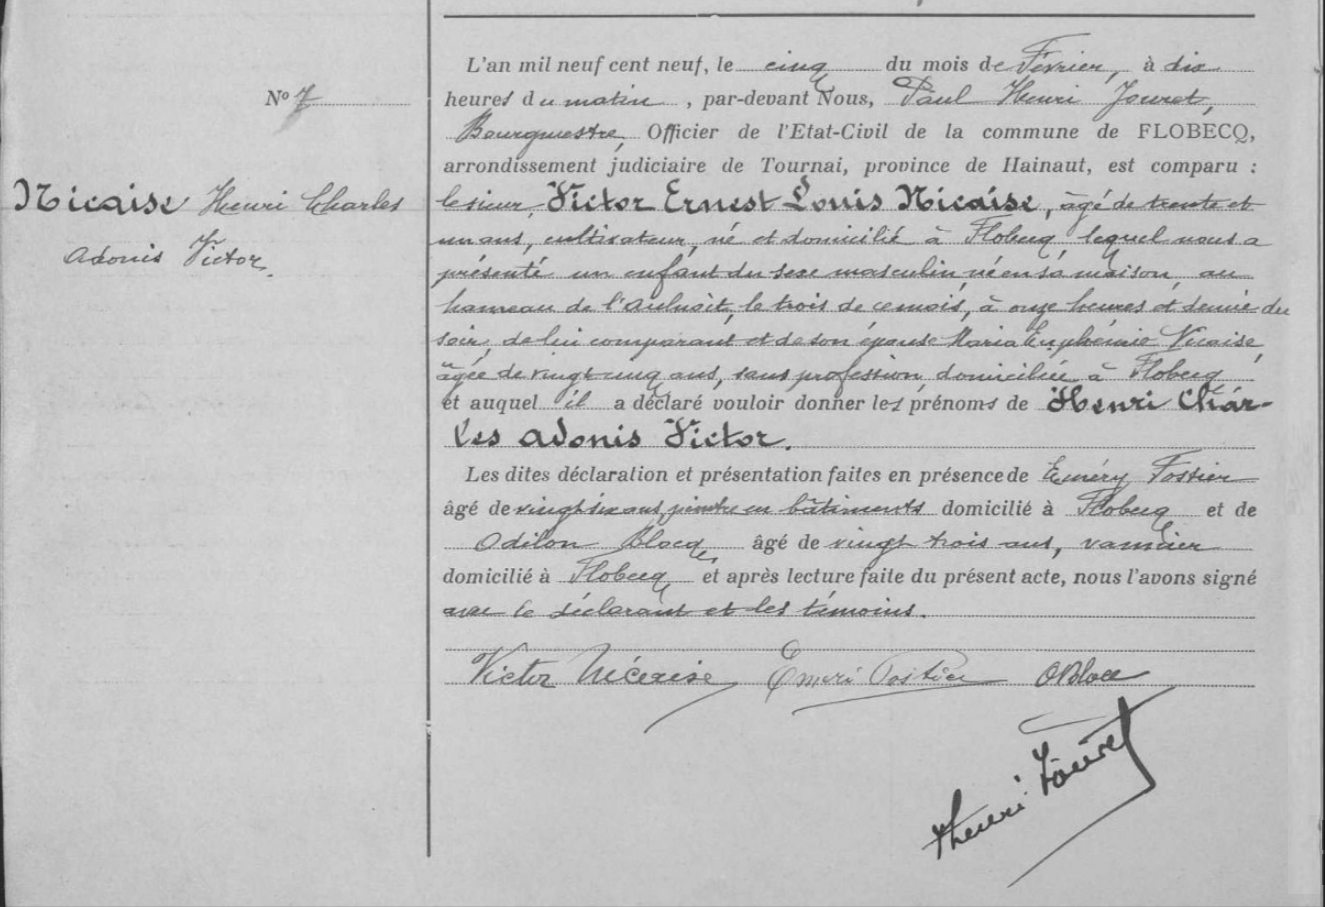 L'an mil neuf cent neuf, le cinq du mois de Février, à dix
Nº 7
heures du matin, par-devant Nous, Paul Henri Jouret,
Bourgmestre, Officier de l'Etat-Civil de la commune de FLOBECQ,
arrondissement judiciaire de Tournai, province de Hainaut, est comparu :
Nicaise Henri Charles
Adonis Victor.
le sieur, Victor Ernest Louis Nicaise, âgé de trente et
un ans, cultivateur, né et domicilié à Flobecq, lequel nous a
présenté un enfant du sexe masculin, né en sa maison, au
hameau de l'Aulnoit, le trois de ce mois, à onze heures et demie du
soir, de lui comparant et de son épouse Maria Euphémie Nicaise,
âgée de vingt cinq ans, sans profession, domiciliée à Flobecq
et auquel il a déclaré vouloir donner les prénoms de Henri Char-
les Adonis Victor.
Les dites déclaration et présentation faites en présence de Eméry Fostier
âgé de vingt six ans, peintre en bâtiments domicilié à Flobecq et de
Odilon Blocq, âgé de vingt trois ans, vannier
domicilié à Flobecq et après lecture faite du présent acte, nous l'avons signé
avec le déclarant et les témoins.
Victor Nicaise Emeri Fostier OBlocq
Henri Jouret